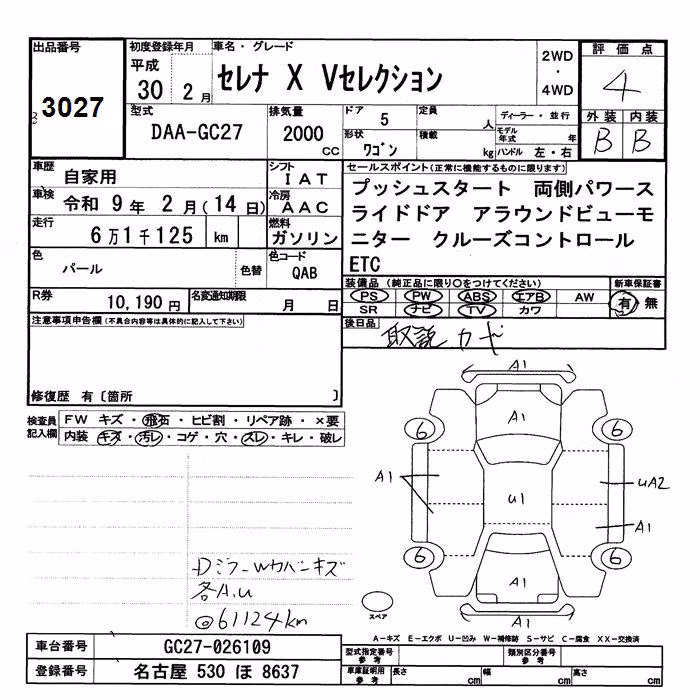 出品番号
3027
初度登録年月
平成
30 2月
車名・グレード
セレナ X Vセレクション
2WD
・
4WD
評価点
4
外装 内装
B B
型式
DAA-GC27
排気量
2000
CC
ドア
5
定員
人
ディーラー・並行
形状
ワゴン
積載
kg
モデル年式 年
ハンドル 左・右
車歴
自家用
シフト
IAT
車検
令和 9年 2月(14日)
冷房
AAC
走行
6万1千125 km
燃料
ガソリン
色
パール
色替
色コード
QAB
R券
10,190円
名変通知期限
月 日
セールスポイント(正常に機能するものに限ります)
プッシュスタート 両側パワース
ライドドア アラウンドビューモ
ニター クルーズコントロール
ETC
装備品(純正品に限り○をつけてください)
新車保証書
PS PW ABS エアB AW
SR ナビ TV カワ
有・無
後日品
取説
注意事項申告欄(不具合内容等は具体的に記入して下さい)
修復歴 有〔箇所 〕
検査員
記入欄
FW キズ・飛石・ヒビ割・リペア跡・×要
内装 キズ・汚レ・コゲ・穴・スレ・キレ・破レ
A1
A1
6
6
A1
U1
UA2
A1
6
6
A1
A1
スペア
Dミラーウカバーキズ
各A.U
◎61124km
A−キズ E−エクボ U−凹み W−補修跡 S−サビ C−腐食 XX−交換済
車台番号
GC27-026109
登録番号
名古屋 530 ほ 8637
型式指定番号
参考
類別区分番号
参考
車庫証明用
参考
長さ cm
幅 cm
高さ cm